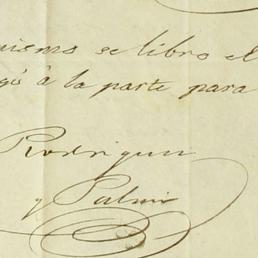 mismo se libro el
gó à la parte para
Rodriguez
y Palmi